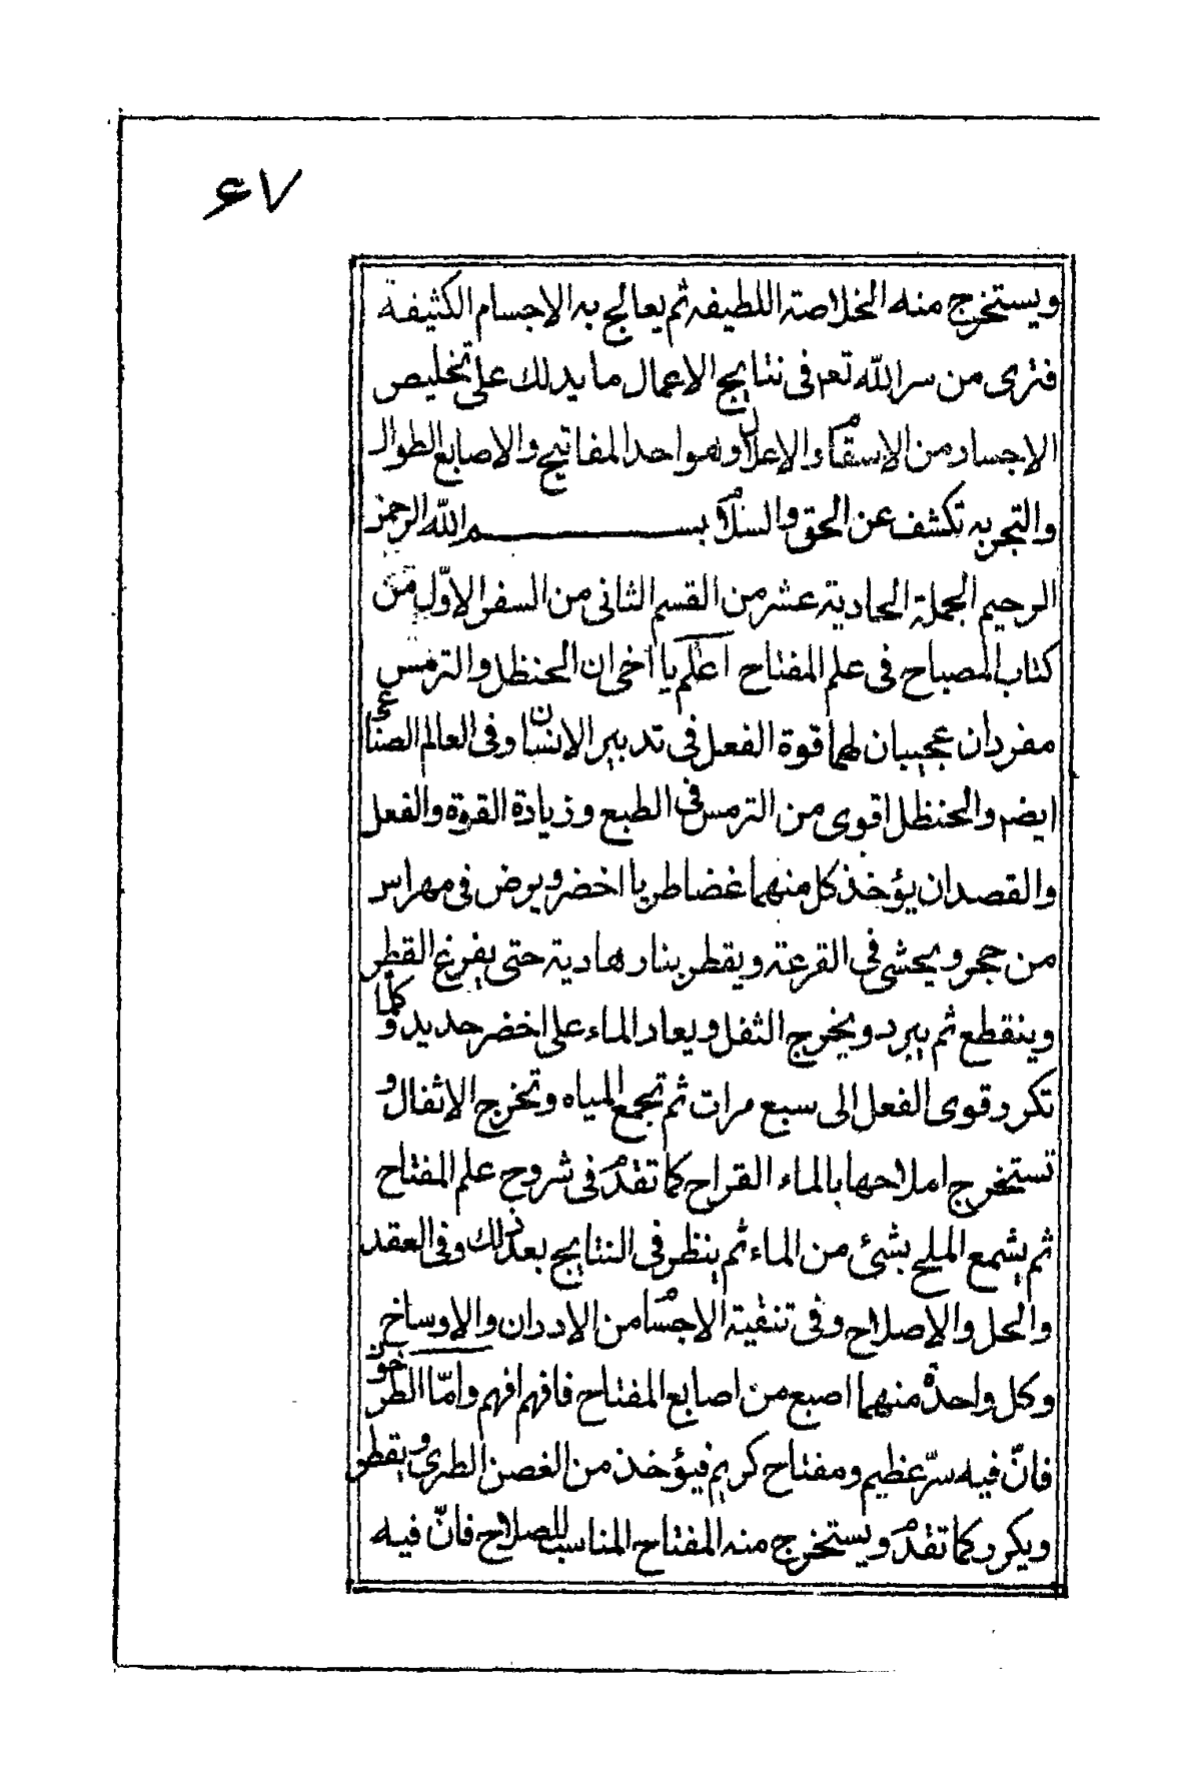 ۶۷
ويستخرج منه الخلاصة اللطيفه ثم يعالج به الاجسام الكثيفة
فترى من سر الله تعم فى نتايج الاعمال ما يدلك على تخليص
الاجساد من الاسقام والاعلان وهو احد المفاتيح والاصابع الطوال
والتجربه تكشف عن الحق والسلام بسم الله الرحمن
الرحيم الجملة الحادية عشر من القسم الثانى من السفر الاوّل من
كتاب المصباح فى علم المفتاح اعلم يا اخى ان الحنظل والترمس
مفردان عجيبان لهما قوة الفعل فى تدبير الانسان وفى العالم الصناعى
ايضم والحنظل اقوى من الترمس فى الطبع وزيادة القوة والفعل
والقصد ان يؤخذ كل منهما غضا طريا اخضر ويرض فى مهراس
من حجر ويحشى فى القرعة ويقطر بنار هادية حتى يفرغ القطر
وينقطع ثم يبرد ويخرج الثفل ويعاد الماء على اخضر جديد وكلما
تكرر قوى الفعل الى سبع مرات ثم تجمع المياه وتخرج الاثفال و
تستخرج املاحها بالماء القراح كما تقدم فى شروح علم المفتاح
ثم يشمع الملح بشئ من الماء ثم ينظر فى النتايج بعد ذلك وفى العقد
والحل والاصلاح وفى تنقية الاجسام من الادران والاوساخ
وكل واحدة منهما اصبع من اصابع المفتاح فافهم افهم وامّا الطرخون
فانّ فيه سرّ عظيم ومفتاح كريم فيؤخذ من الغصن الطرى ويقطر
ويكرر كما تقدم ويستخرج منه المفتاح المناسب للصلاح فانّ فيه